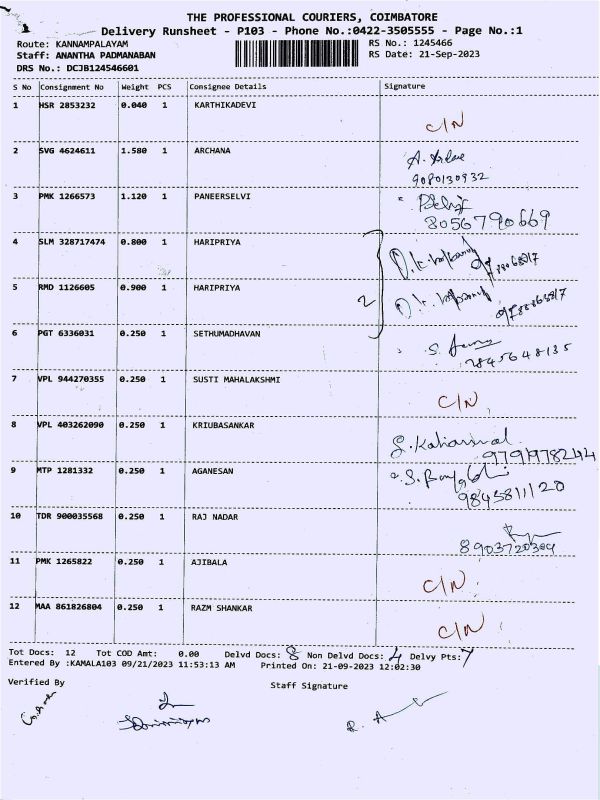 THE PROFESSIONAL COURIERS, COIMBATORE
Delivery Runsheet - P103 - Phone No.:0422-3505555 - Page No.:1
Route: KANNAMPALAYAM RS No.: 1245466
Staff: ANANTHA PADMANABAN RS Date: 21-Sep-2023
DRS No.: DCJB124546601
S No Consignment No Weight PCS Consignee Details Signature
1 HSR 2853232 0.040 1 KARTHIKADEVI
C/N
2 SVG 4624611 1.580 1 ARCHANA
9080130932
3 PMK 1266573 1.120 1 PANEERSELVI
8056790669
4 SLM 328717474 0.800 1 HARIPRIYA
2
5 RMD 1126605 0.900 1 HARIPRIYA
6 PGT 6336031 0.250 1 SETHUMADHAVAN
9845648135
7 VPL 944270355 0.250 1 SUSTI MAHALAKSHMI
C/N
8 VPL 403262090 0.250 1 KRIUBASANKAR
9791978244
9 MTP 1281332 0.250 1 AGANESAN
9845811120
10 TDR 900035568 0.250 1 RAJ NADAR
8903720304
11 PMK 1265822 0.250 1 AJIBALA
C/N
12 MAA 861826804 0.250 1 RAZM SHANKAR
C/N
Tot Docs: 12 Tot COD Amt: 0.00 Delvd Docs: 8 Non Delvd Docs: 4 Delvy Pts: 7
Entered By :KAMALA103 09/21/2023 11:53:13 AM Printed On: 21-09-2023 12:02:30
Verified By Staff Signature
R. A